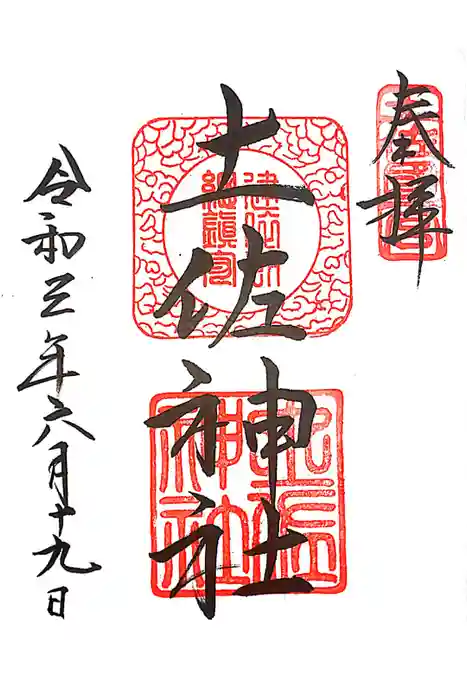 奉拝
土佐神社
令和三年六月十九日
土佐神社